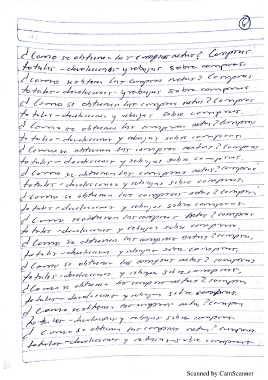 6
¿Como se obtienen las compras netas? Compras
totales - devoluciones y rebajas sobre compras.
¿Como se obtienen las compras netas? Compras
totales - devoluciones y rebajas sobre compras
¿Como se obtienen las compras netas? Compras
totales - devoluciones y rebajas sobre compras.
¿Como se obtienen las compras netas? Compras
totales - devoluciones y rebajas sobre compras.
¿Como se obtienen las compras netas? Compras
totales - devoluciones y rebajas sobre compras.
¿Como se obtienen las compras netas? Compras
totales - devoluciones y rebajas sobre compras.
¿Como se obtienen las compras netas? Compras
totales - devoluciones y rebajas sobre compras.
¿Como se obtienen las compras netas? Compras
totales - devoluciones y rebajas sobre compras
¿Como se obtienen las compras netas? Compras,
totales - devoluciones y rebajas sobre compras,
¿Como se obtienen las compras netas? Compras
totales - devoluciones y rebajas sobre compras,
¿Como se obtienen las compras netas? Compras
totales - devoluciones y rebajas sobre compras.
¿Como se obtienen las compras netas? Compras
totales - devoluciones y rebajas sobre compras.
¿Como se obtienen las compras netas? Compras
totales - devoluciones y rebajas sobre compras.
Scanned by CamScanner